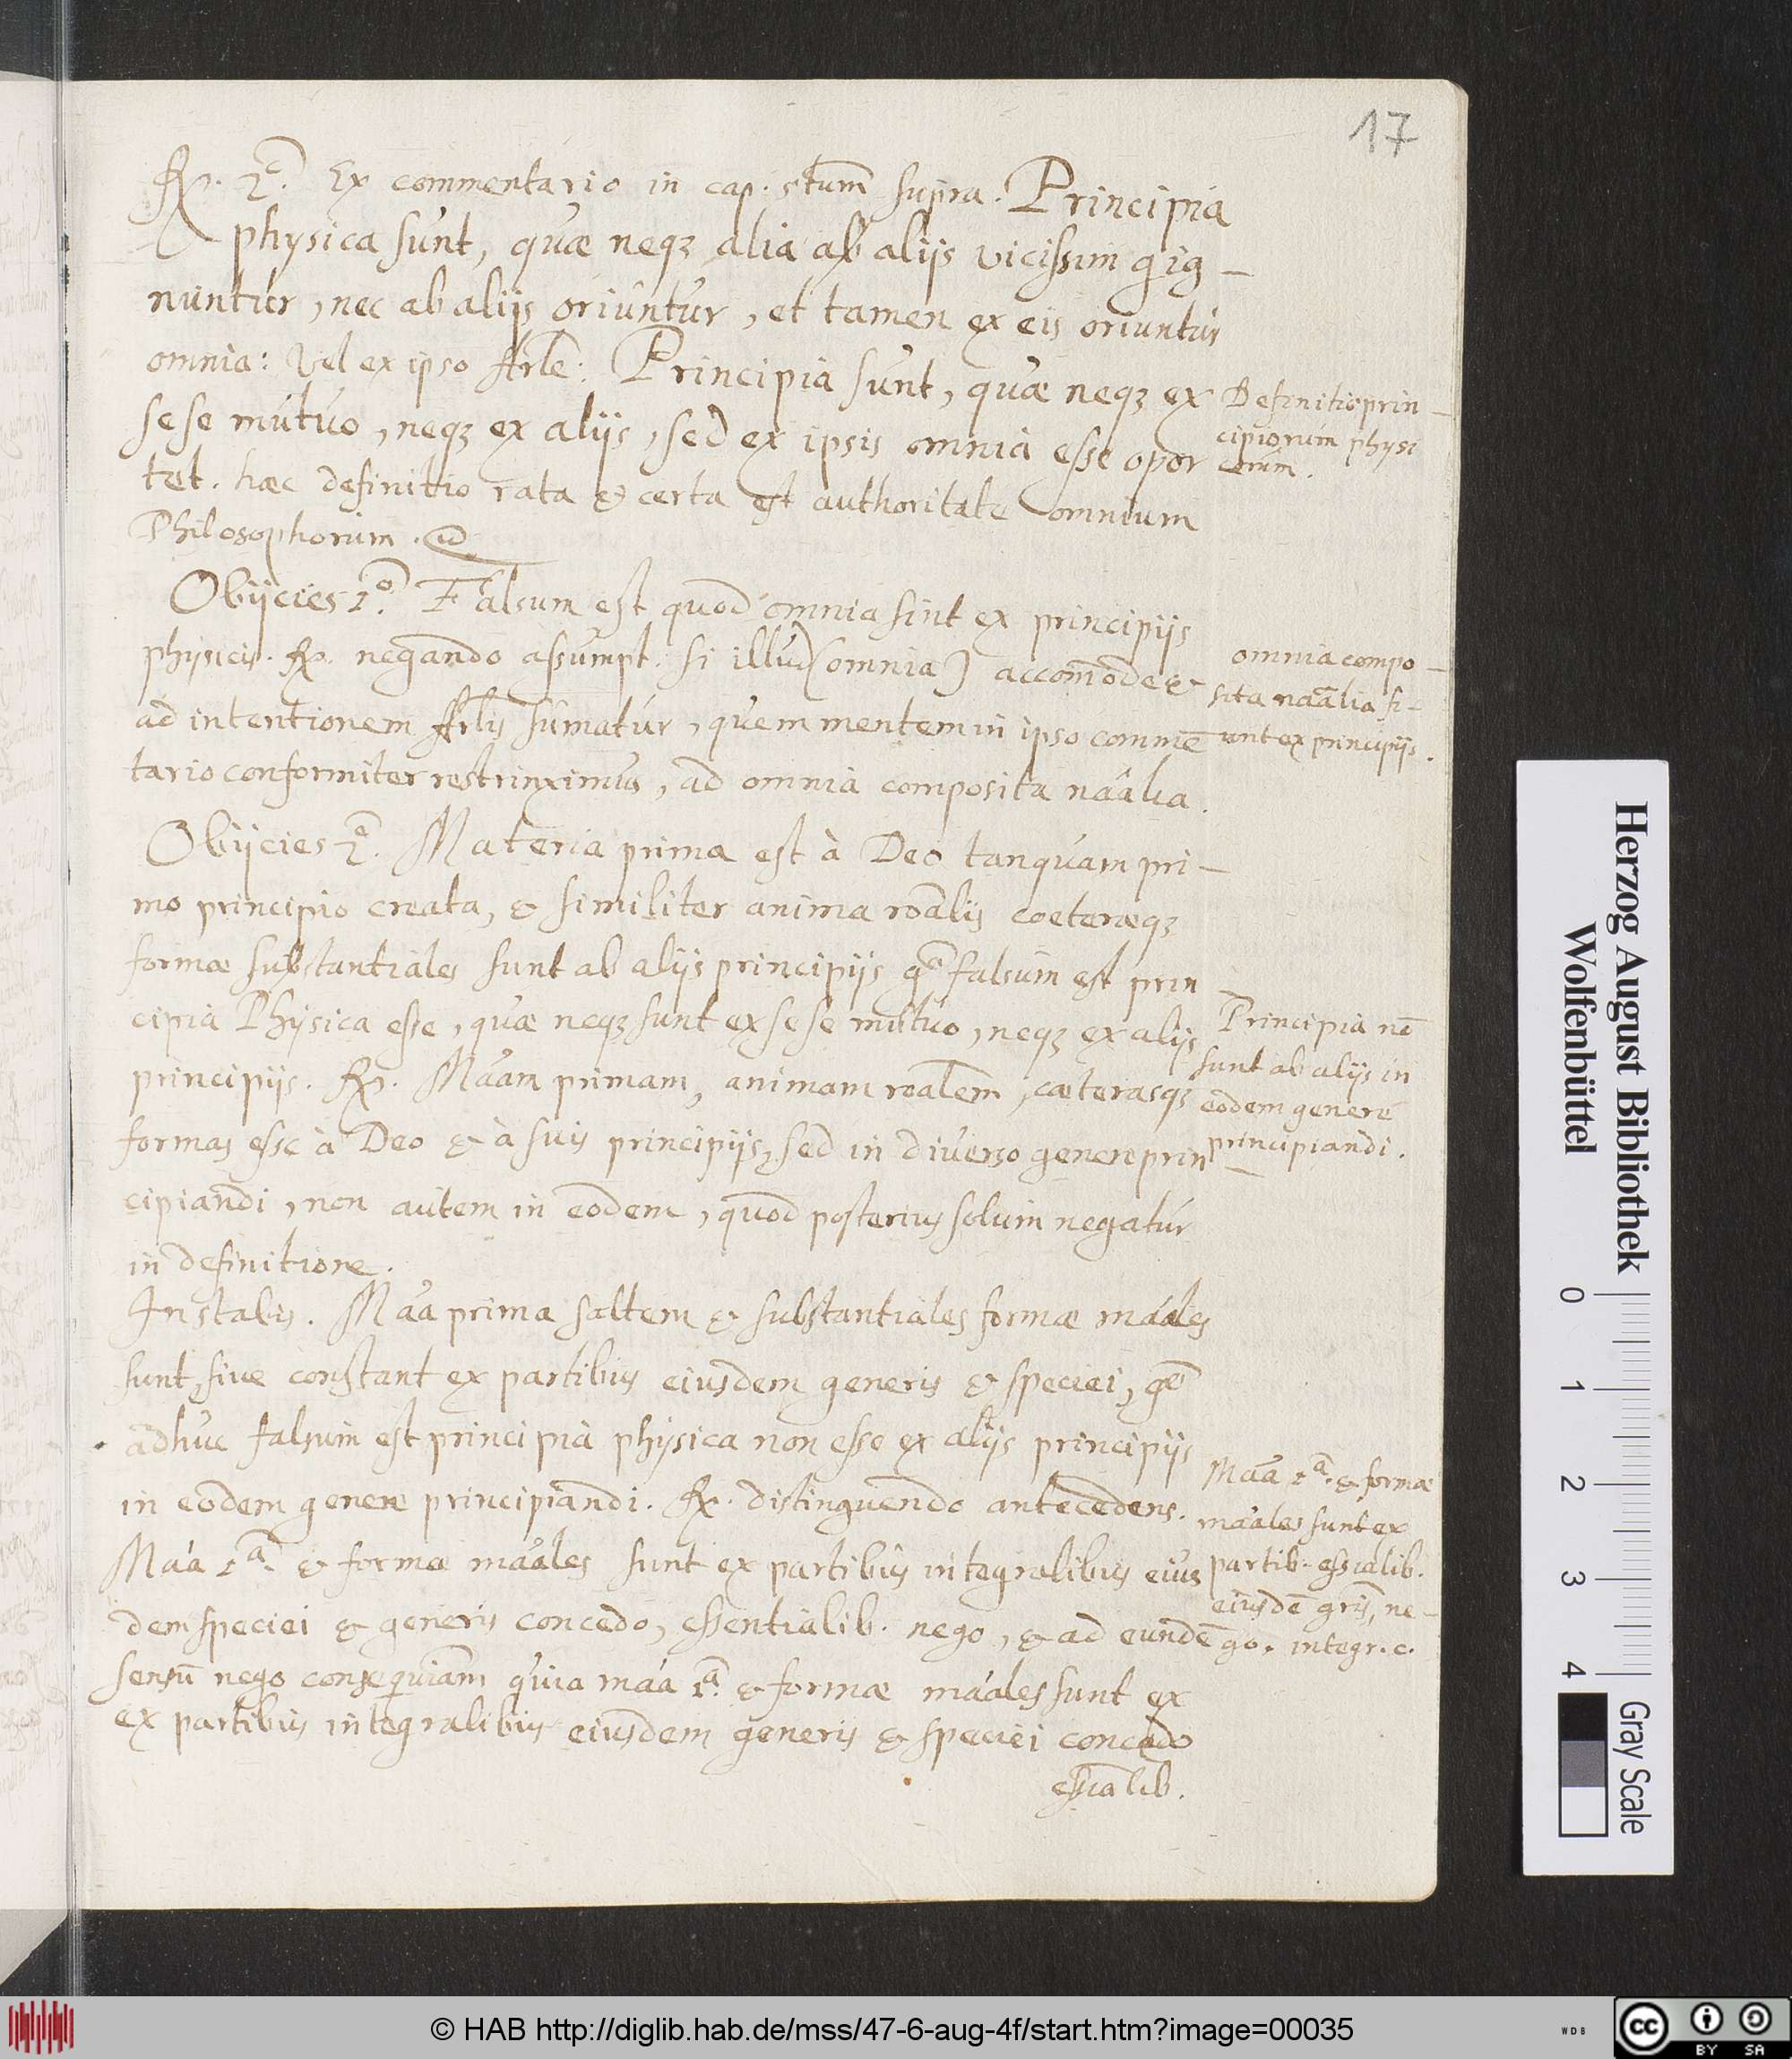 17
R. 2º. Ex commentario in cap. 5tum supra. Principia
physica sunt, quæ neqꝫ alia ab alijs vicissim gig-
nuntur, nec ab alijs oriuntur, et tamen ex eis oriuntur
omnia: Vel ex ipso Arle: Principia sunt, quæ neqꝫ ex
sese mutuo, neqꝫ ex alijs, sed ex ipsis omnia esse opor
tet. hæc definitio rata & certa est authoritate omnium
Philosophorum.
Definitio prin-
cipiorum physi
corum.
Obijcies 1º. Falsum est quod omnia sint ex principijs
physicis. R. negando assumpt. si illud (omnia) accom̃ode &
ad intentionem Arlis sumatur, quem mentem in ipso commē
tario conformiter restrinximus, ad omnia composita nãalia.
omnia compo-
sita nãalia fi-
unt ex principijs.
Obijcies 2º. Materia prima est à Deo tanquam pri-
mo principio creata, & similiter anima rõalis coeteræqꝫ
formæ substantiales sunt ab alijs principijs gº falsum est prin
cipia Physica esse, quæ neqꝫ sunt ex sese mutuo, neqꝫ ex alijs
principijs. R. Mãam primam, animam rõalem, cæterasqꝫ
formas esse à Deo & à suis principijs, sed in diverso genere prin-
cipiandi, non autem in eodem, quod posterius solum negatur
in definitione.
Principia nõ
sunt ab alijs in
eodem genere
principiandi.
Instabis. Mãa prima saltem & substantiales formæ mãales
sunt, sive constant ex partibus eiusdem generis & speciei, gº
adhuc falsum est principia physica non esse ex alijs principijs
in eodem genere principiandi. R. distinguendo antecedens.
Mãa 1ª. & formæ mãales sunt ex partibus integralibus eius
dem speciei & generis concedo, essentialib. nego, & ad eundē
sensũ nego consequiam quia mãa 1ª. & formæ mãales sunt ex
ex partibus integralibus eiusdem generis & speciei concedo
essialib.
Mãa 1ª. & formæ
mãales sunt ex
partib. essialib.
eiusdē gris, ne-
go. integr. c.
Herzog August Bibliothek
Wolfenbüttel
0 1 2 3 4
Gray Scale
© HAB http://diglib.hab.de/mss/47-6-aug-4f/start.htm?image=00035
WDB
cc BY SA